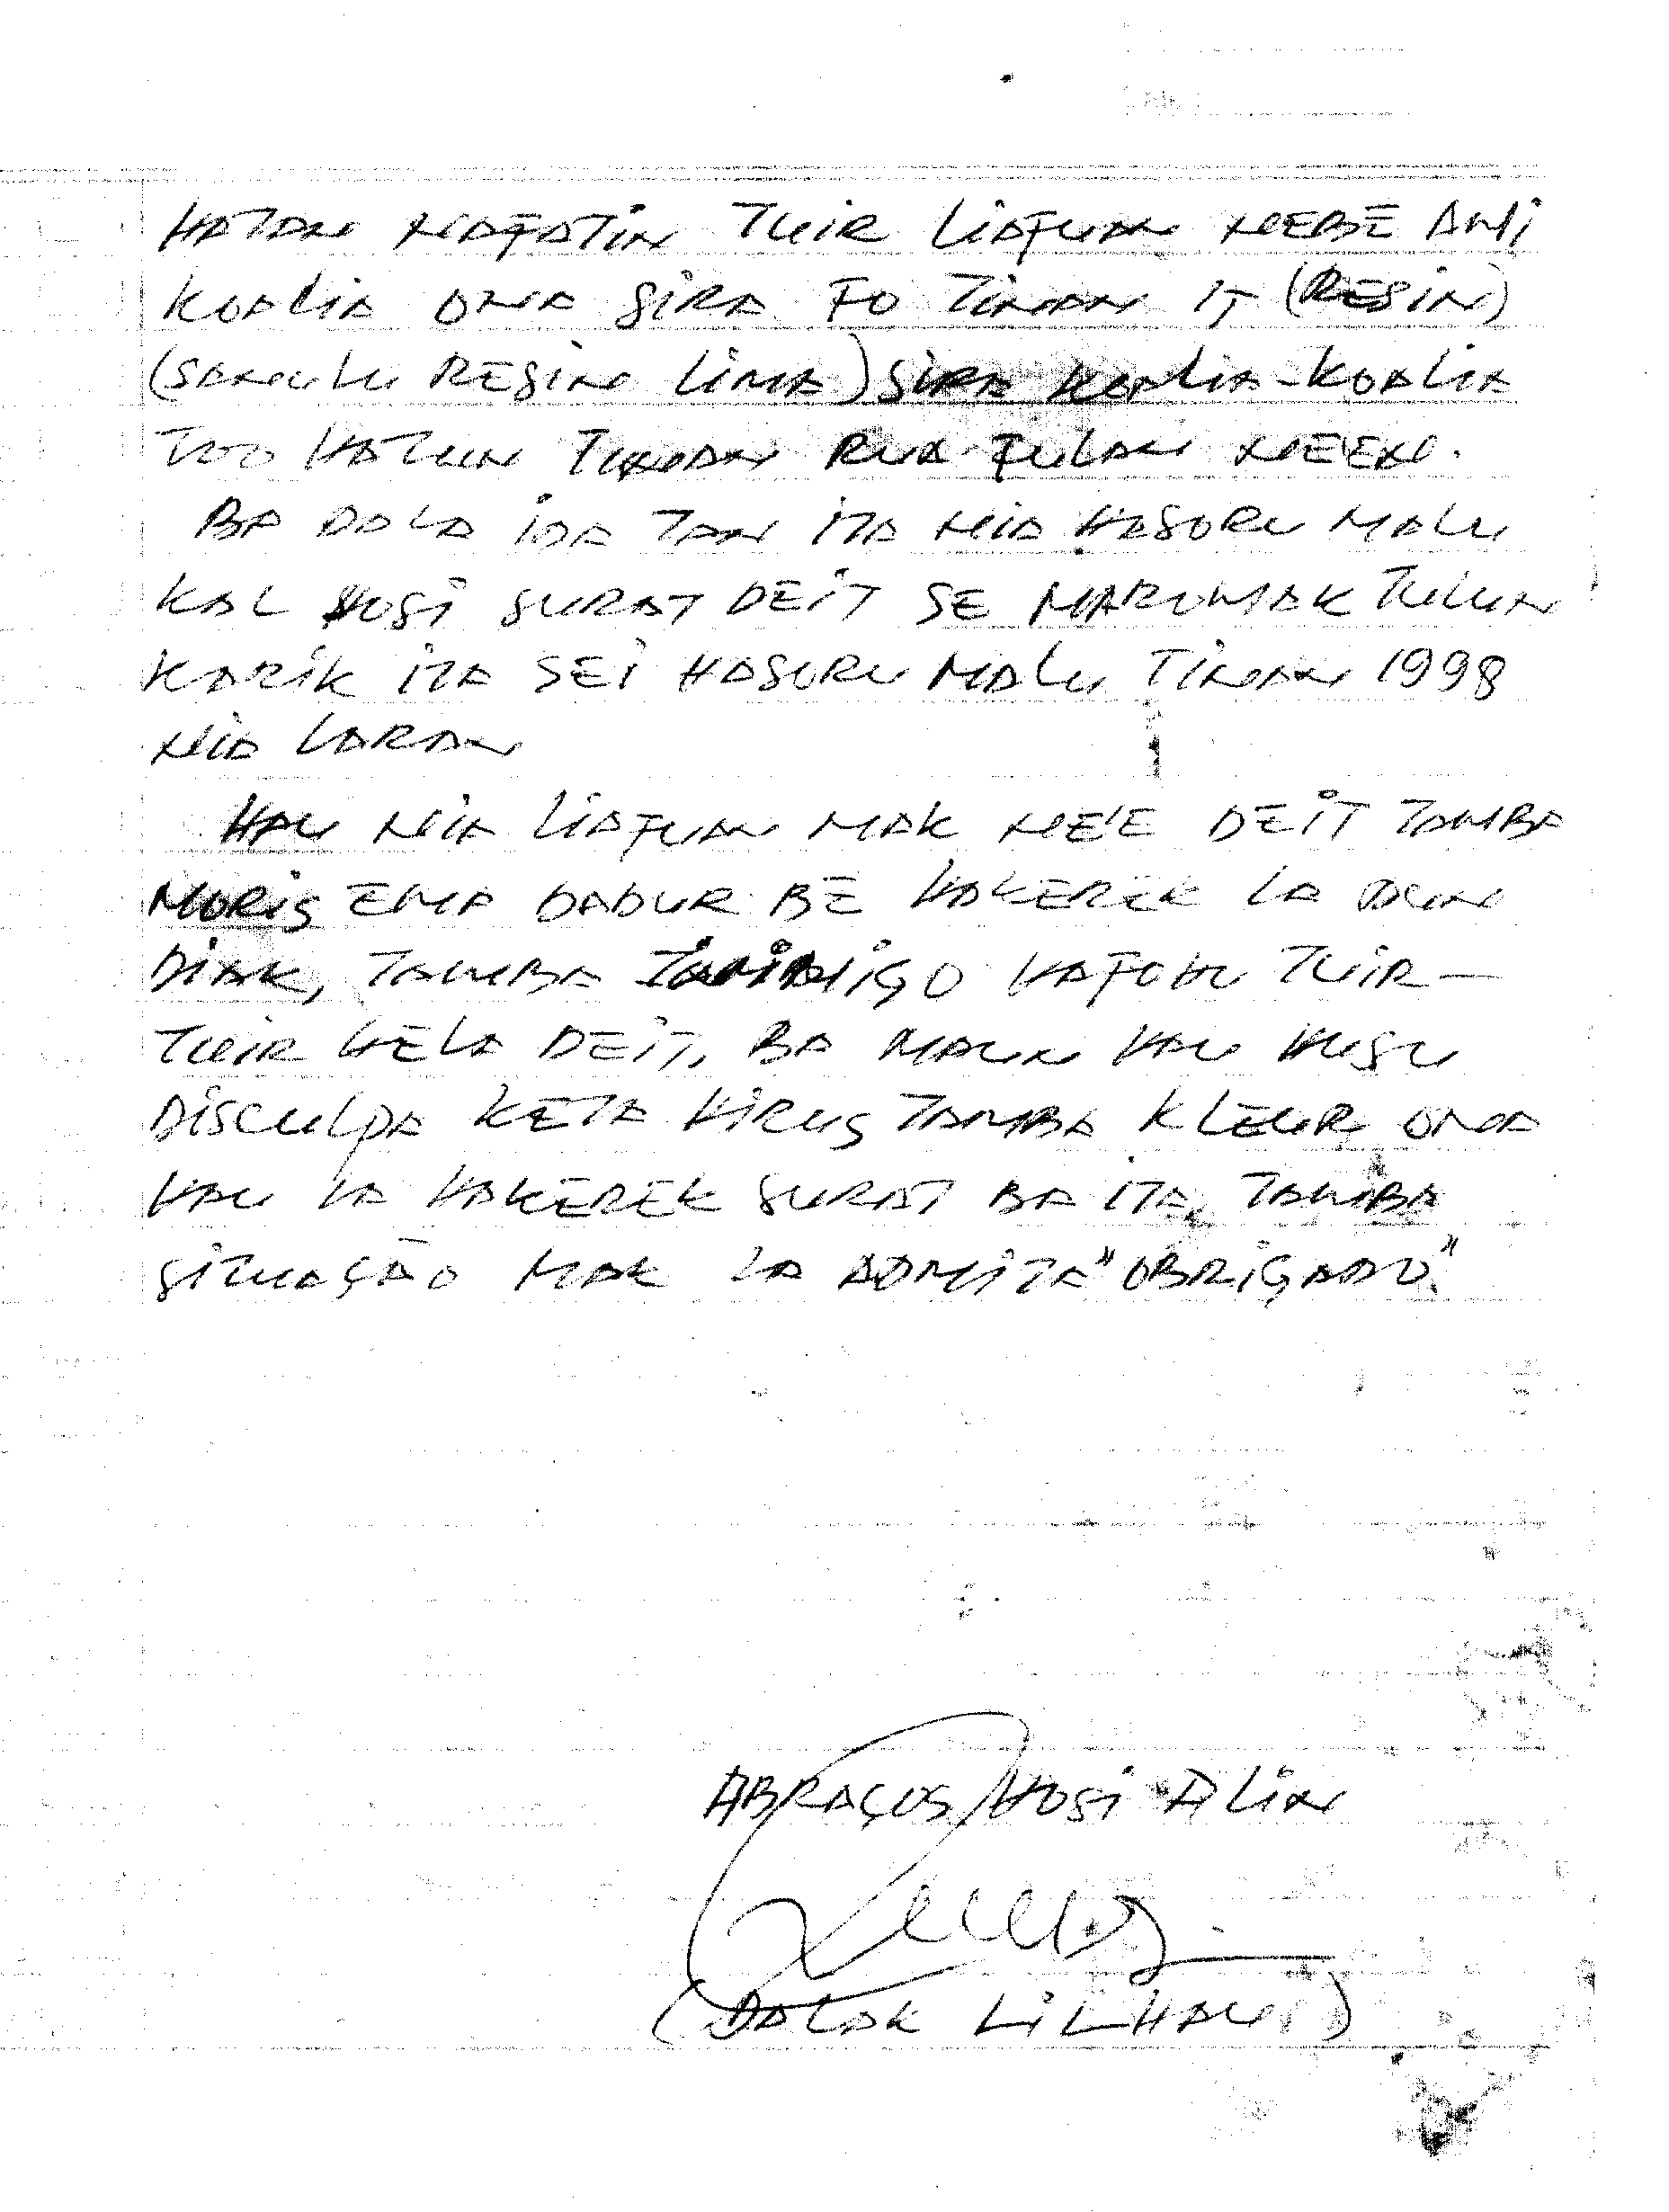 HATAN NAFATIN TUIR LIAFUAN NEBÉ AMI
KOALIA ONA SIRA FO TINAN 15 (RESIN)
(SANULU RESIN LIMA) SIRA KOALIA-KOALIA
TOO HATUN TINAN RUA FULAN NEEN.
BA DALA IDA TAN ITA NIA HASORU MALU
KAL HOSI SURAT DEIT SE MAROMAK TULUN
KARIK ITA SEI HASORU MALU TINAN 1998
NIA LARAN
HAU NIA LIAFUAN MAK NE'E DEIT TAMBA
MORIS EMA DADUR BÉ HAKEREK LA DUN
DIAK, TAMBA HAFOHU TUIR-
TUIR HELA DEIT, BA MAUN HAU HUSU
DISCULPA KETA HIRUS TAMBA KLEUR ONA
HAU LA HAKEREK SURAT BA ITA, TAMBA
SITUAÇÃO MAK LA ADMITA "OBRIGADO."
ABRAÇOS HOSI ALIN
(DALAK LILHAU)